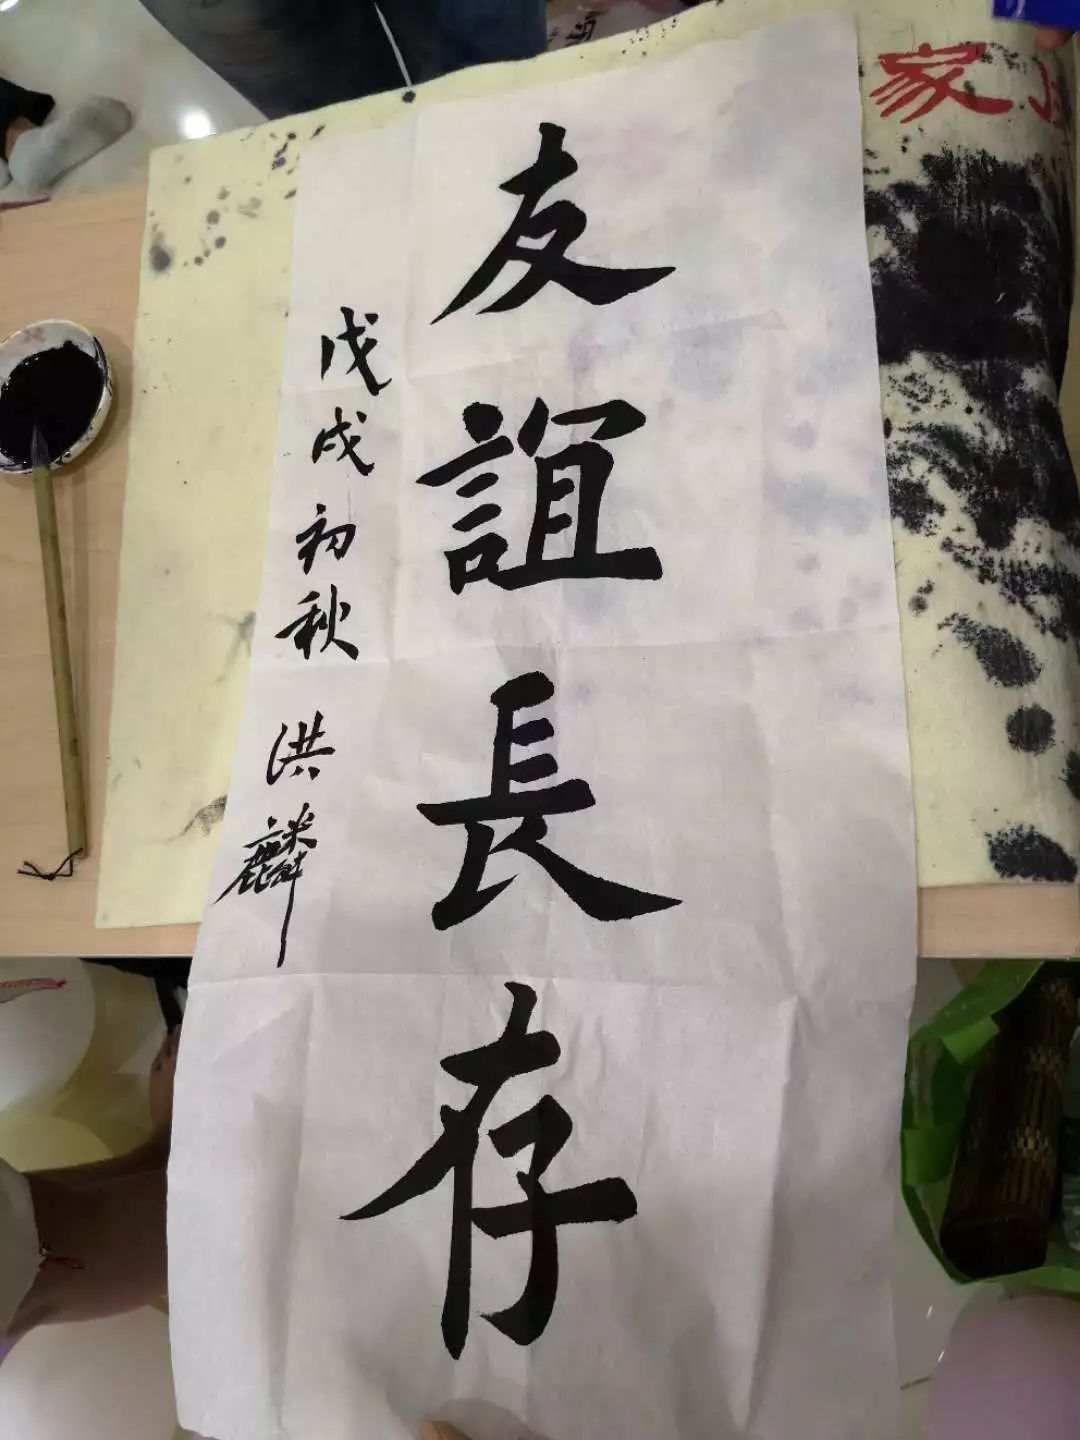 友誼長存
戊戌初秋 洪麟
家